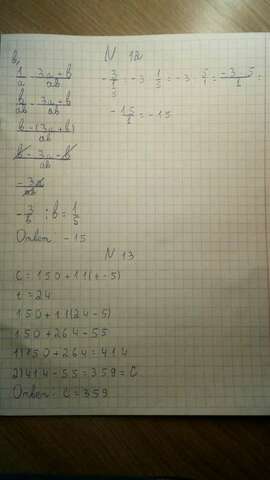 в)
N 12
1/a - (3a + b)/ab
b/ab - (3a + b)/ab
(b - (3a + b))/ab
(b - 3a - b)/ab
- 3a/ab
- 3/b ; b = 1/5
Ответ -15
- 3/(1/5) = -3 : 1/5 = -3 · 5/1 = (-3 · 5)/1 =
- 15/1 = -15
N 13
C = 150 + 11(t - 5)
t = 24
150 + 11(24 - 5)
150 + 264 - 55
1) 150 + 264 = 414
2) 414 - 55 = 359 = C
Ответ: C = 359